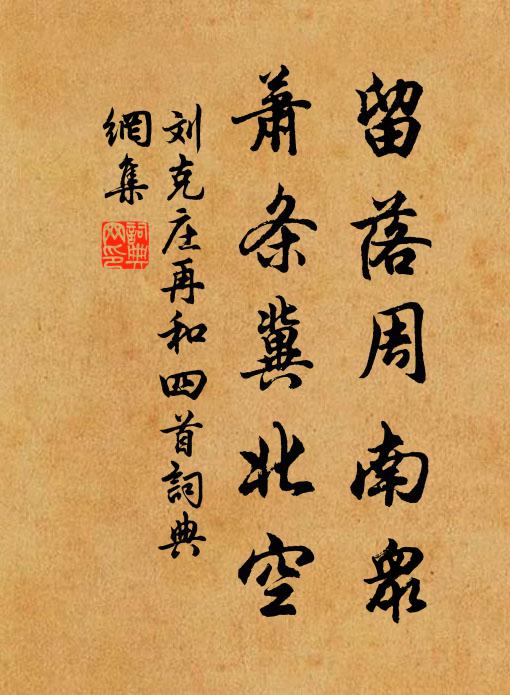 留落周南衆
萧条冀北空
刘克庄再和四首詞典
網集
詞典
网印